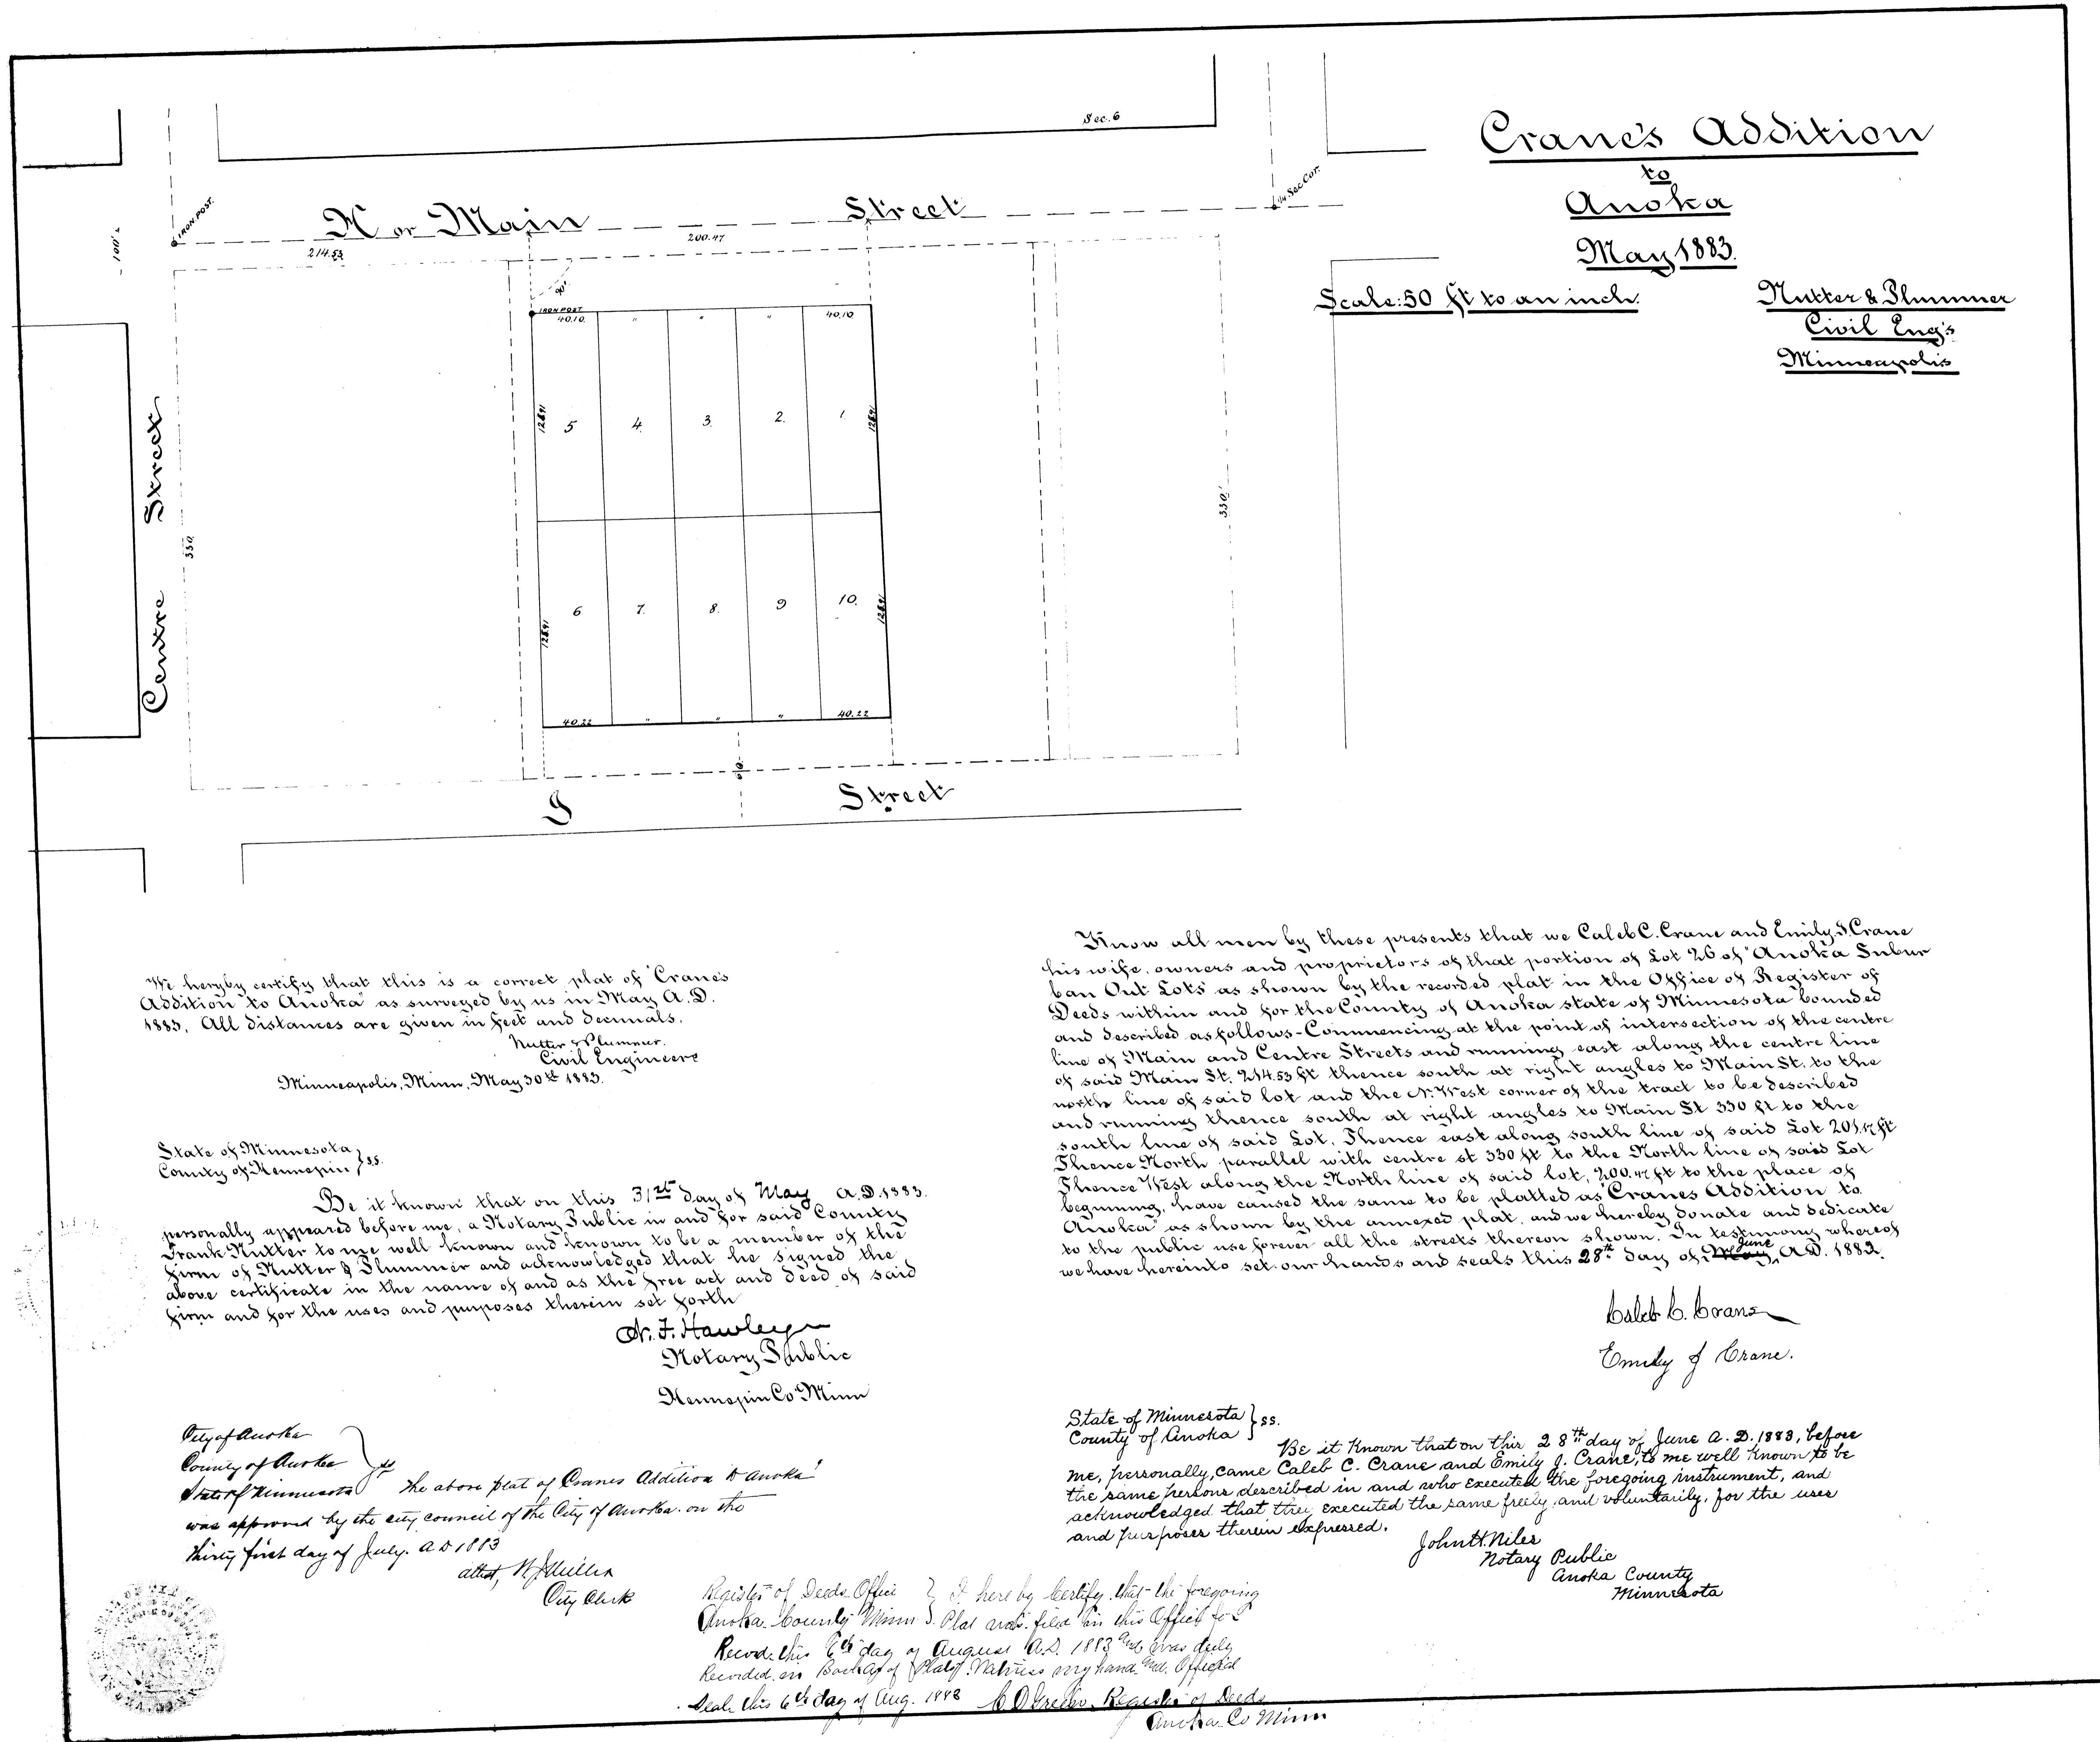 Sec. 6
Crane's Addition
to
Anoka
May 1883.
Scale: 50 ft to an inch.
Nutter & Plummer
Civil Eng's
Minneapolis
IRON POST.
Sec Cor.
100.
N or Main Street
214.53
200.47
IRON POST
40.10 " " " 40.10
128.91 5 4. 3. 2. 1. 128.91
Centre Street
330.
330.
128.91 6 7. 8. 9 10. 128.91
40.22 " " " 40.22
Street
We hereby certify that this is a correct plat of "Crane's
Addition to Anoka" as surveyed by us in May A.D.
1883. All distances are given in feet and decimals.
Nutter & Plummer.
Civil Engineers
Minneapolis, Minn, May 30th 1883.
State of Minnesota } ss.
County of Hennepin
Be it known that on this 31st day of May A.D. 1883.
personally appeared before me, a Notary Public in and for said County
Frank Nutter to me well known and known to be a member of the
firm of Nutter & Plummer and acknowledged that he signed the
above certificate in the name of and as the free act and deed of said
firm and for the uses and purposes therein set forth
Notary Public
Hennepin Co Minn
City of Anoka
County of Anoka } ss
State of Minnesota The above plat of Cranes Addition to Anoka
was approved by the city council of the City of Anoka on the
thirty first day of July. A D 1883
attest,
City Clerk
Know all men by these presents that we Caleb C. Crane and Emily J. Crane
his wife, owners and proprietors of that portion of Lot 26 of "Anoka Subur
ban Out Lots" as shown by the recorded plat in the Office of Register of
Deeds within and for the County of Anoka state of Minnesota bounded
and described as follows - Commencing at the point of intersection of the centre
line of Main and Centre Streets and running east along the centre line
of said Main St. 214.53 ft thence south at right angles to Main St. to the
north line of said lot and the N. West corner of the tract to be described
and running thence south at right angles to Main St 330 ft to the
south line of said Lot. Thence east along south line of said Lot 201.17 ft
Thence North parallel with centre st 330 ft to the North line of said Lot
Thence West along the North line of said lot, 200.47 ft to the place of
beginning, have caused the same to be platted as "Cranes Addition to
Anoka" as shown by the annexed plat, and we hereby donate and dedicate
to the public use forever all the streets thereon shown. In testimony whereof
we have hereinto set our hands and seals this 28th day of May June A.D. 1883.
Caleb C. Crane
Emily J Crane.
State of Minnesota } ss.
County of Anoka
Be it Known that on this 28th day of June A.D. 1883, before
me, personally, came Caleb C. Crane and Emily J. Crane, to me well known to be
the same persons described in and who executed the foregoing instrument, and
acknowledged that they executed the same freely and voluntarily, for the uses
and purposes therein expressed.
John H. Niles
Notary Public
Anoka County
Minnesota
Register of Deeds Office } I hereby Certify that the foregoing
Anoka County Minn } Plat was filed in this Office for
Record this 6th day of August A.D. 1883 and was duly
Recorded in Book A of Plats. Witness my hand and Official
Seal this 6th day of Aug. 1883 Register of Deeds
Anoka Co Minn